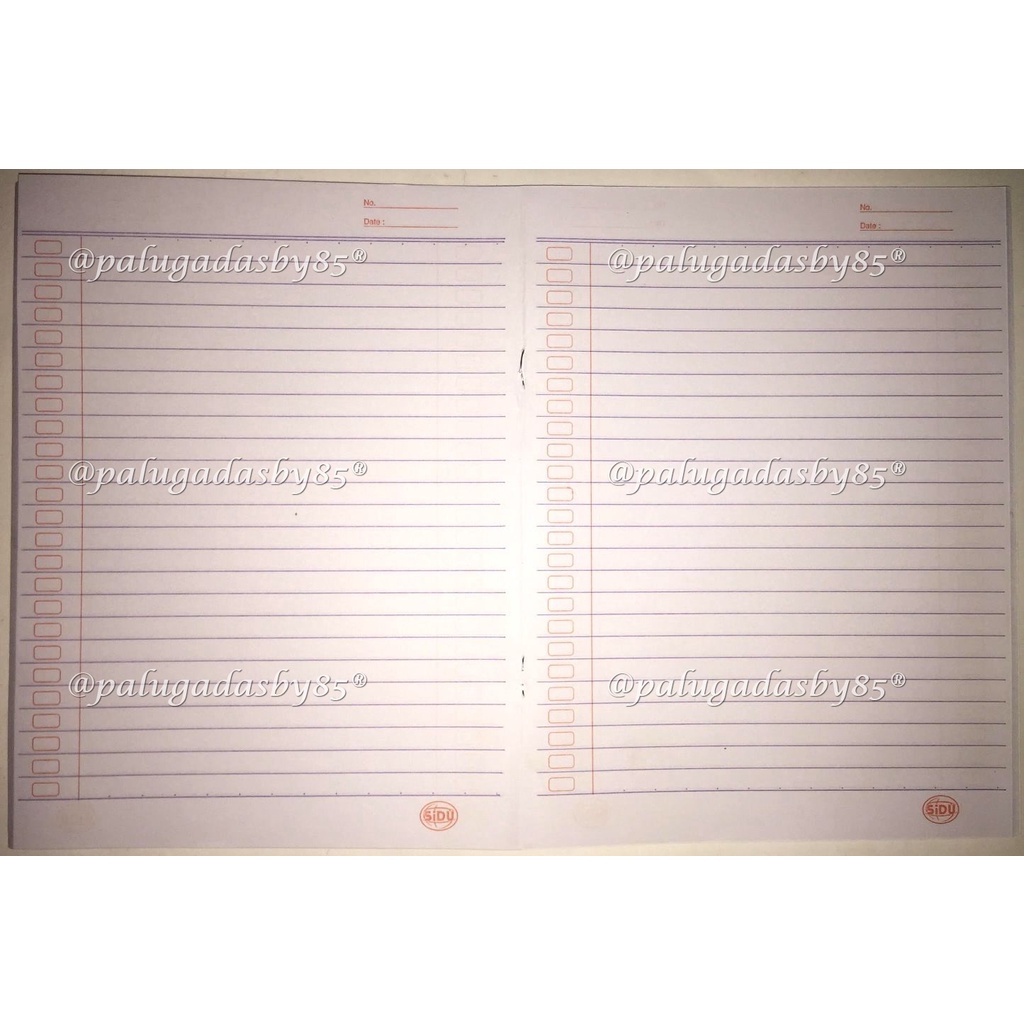 No.
Date :
@palugadasby85®
@palugadasby85®
@palugadasby85®
SiDU
No.
Date :
@palugadasby85®
@palugadasby85®
@palugadasby85®
SiDU